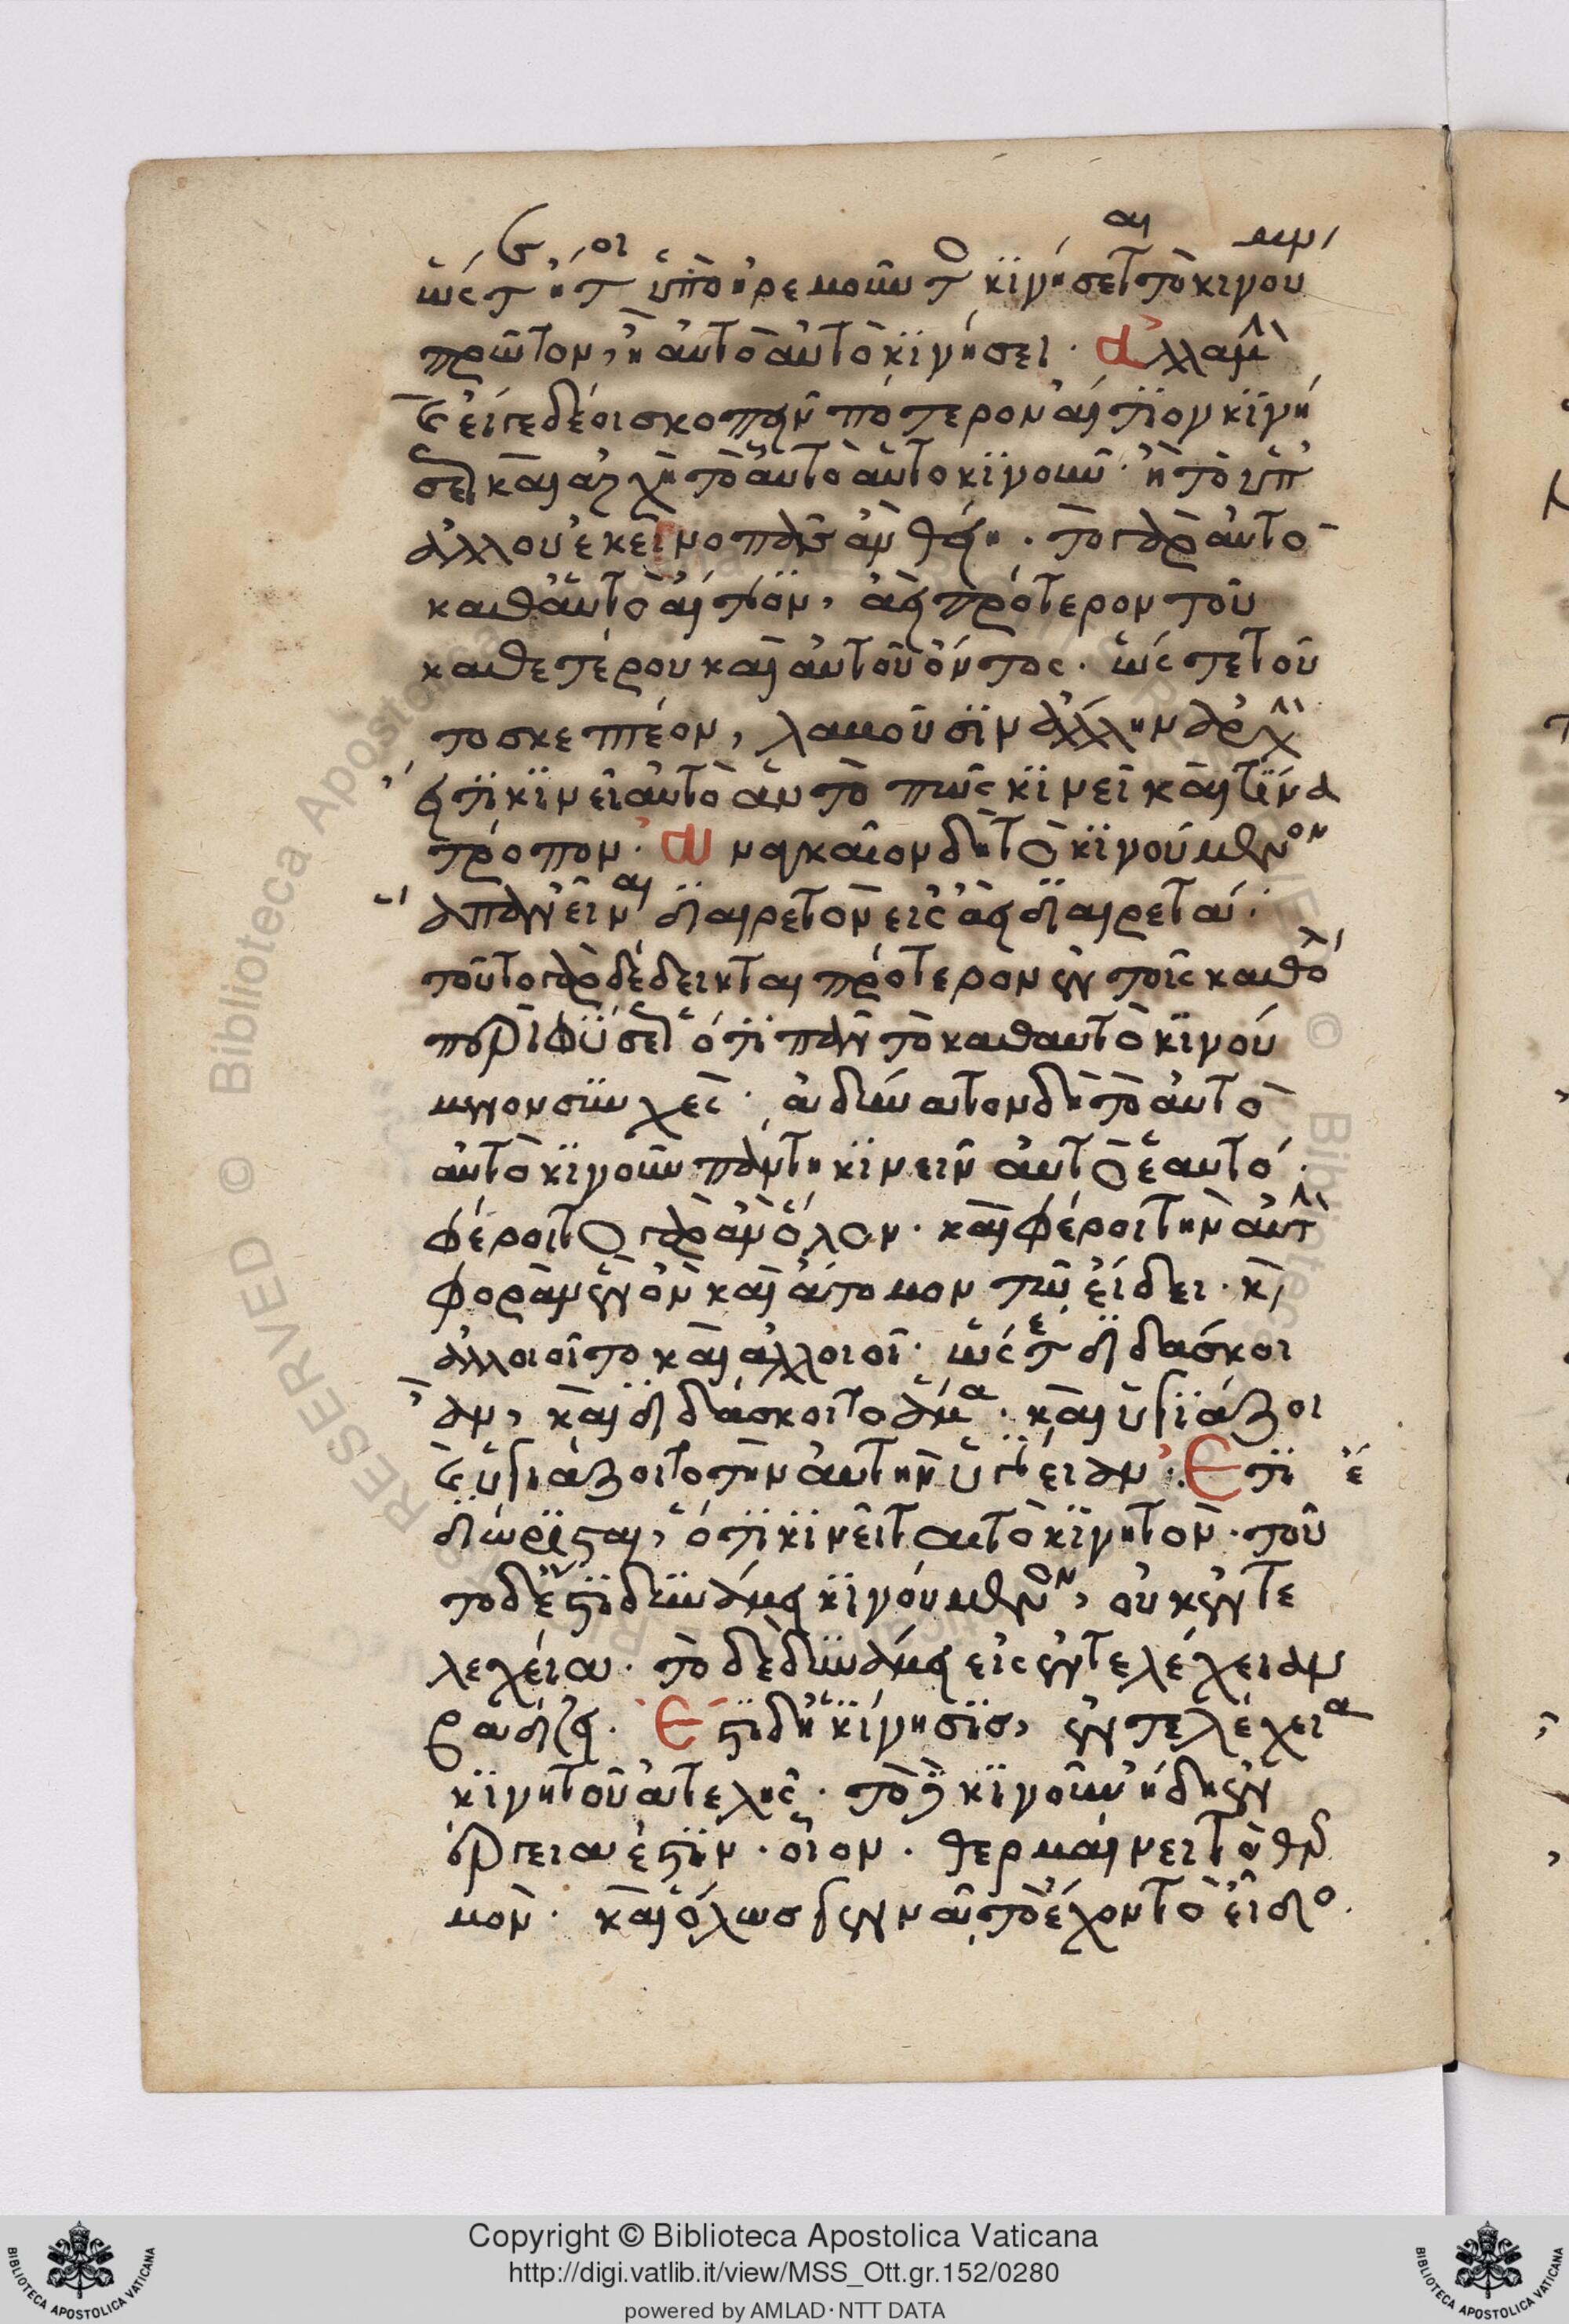 ὥστ' ἤτοι ὑπὸ ἠρεμοῦντο κινήσεται τὸ κινούμεν
πρῶτον, ἢ αὐτὸ αὐτὸ κινήσει. Ἀλλὰ μὴν
καὶ εἴγε δέοι σκοπεῖν πότερον αἴτιον κινή
σεως καὶ ἀρχὴ τὸ αὐτὸ αὑτὸ κινοῦν. ἢ τὸ ὑπ'
ἄλλου ἐκεῖνο πᾶς ἂν θείη. τὸ γὰρ αὐτὸ
καθ' αὑτὸ αἴτιον, ἀεὶ πρότερον τοῦ
καθ' ἕτερον καὶ αὐτοῦ ὄντος. ὥστε τοῦ
το σκεπτέον, λαβοῦσιν ἄλλην ἀρχὴν
εἴ τι κινεῖ αὐτὸ αὑτὸ πῶς κινεῖ καὶ τίνα
τρόπον. Ἀναγκαῖον δὴ τὸ κινούμενον
ἅπαν εἶναι διαιρετὸν εἰς ἀεὶ διαιρετά.
τοῦτο γὰρ δέδεικται πρότερον ἐν τοῖς καθόλ
περὶ φύσεως ὅτι πᾶν τὸ καθ' αὑτὸ κινού
μενον συνεχές. ἀδύνατον δὴ τὸ αὐτὸ
αὑτὸ κινοῦν πάντη κινεῖν αὐτὸ ἑαυτό.
φέροιτο γὰρ ἂν ὅλον. καὶ φέροι τὴν αὐτὴν
φορὰν ἓν ὂν καὶ ἄτομον τῷ εἴδει. καὶ
ἀλλοιοῖτο καὶ ἀλλοιοῖ. ὥστε διδάσκοι
ἂν, καὶ διδάσκοιτο ἅμα. καὶ ὑγιάζοι
καὶ ὑγιάζοιτο τὴν αὐτὴν ὑγίειαν. Ἔτι
διώρισται, ὅτι κινεῖται τὸ κινητόν. τοῦ
το δ' ἔστι δυνάμει κινούμενον, οὐκ ἐντε
λεχείᾳ. τὸ δὲ δυνάμει εἰς ἐντελέχειαν
βαδίζει. Ἔστι δ' ἡ κίνησις, ἐντελέχεια
κινητοῦ ἀτελής. τὸ δὲ κινοῦν ἤδη ἐν
εργείᾳ ἐστίν. οἷον. θερμαίνει τὸ θερ
μόν. καὶ ὅλως γεννᾷ τὸ ἔχον τὸ εἶδος.
Copyright © Biblioteca Apostolica Vaticana
http://digi.vatlib.it/view/MSS_Ott.gr.152/0280
powered by AMLAD·NTT DATA